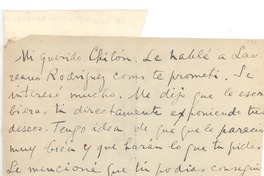 Mi querido Chilón. Le hablé a Lau-
reano Rodríguez como te prometí. Se
interesó mucho. Me dijo que le escri-
bieras tú directamente exponiendo tus
deseos. Tengo idea de que que le pareció
muy bien y que harán lo que tú pides.
Le mencioné que tú podías conseguir